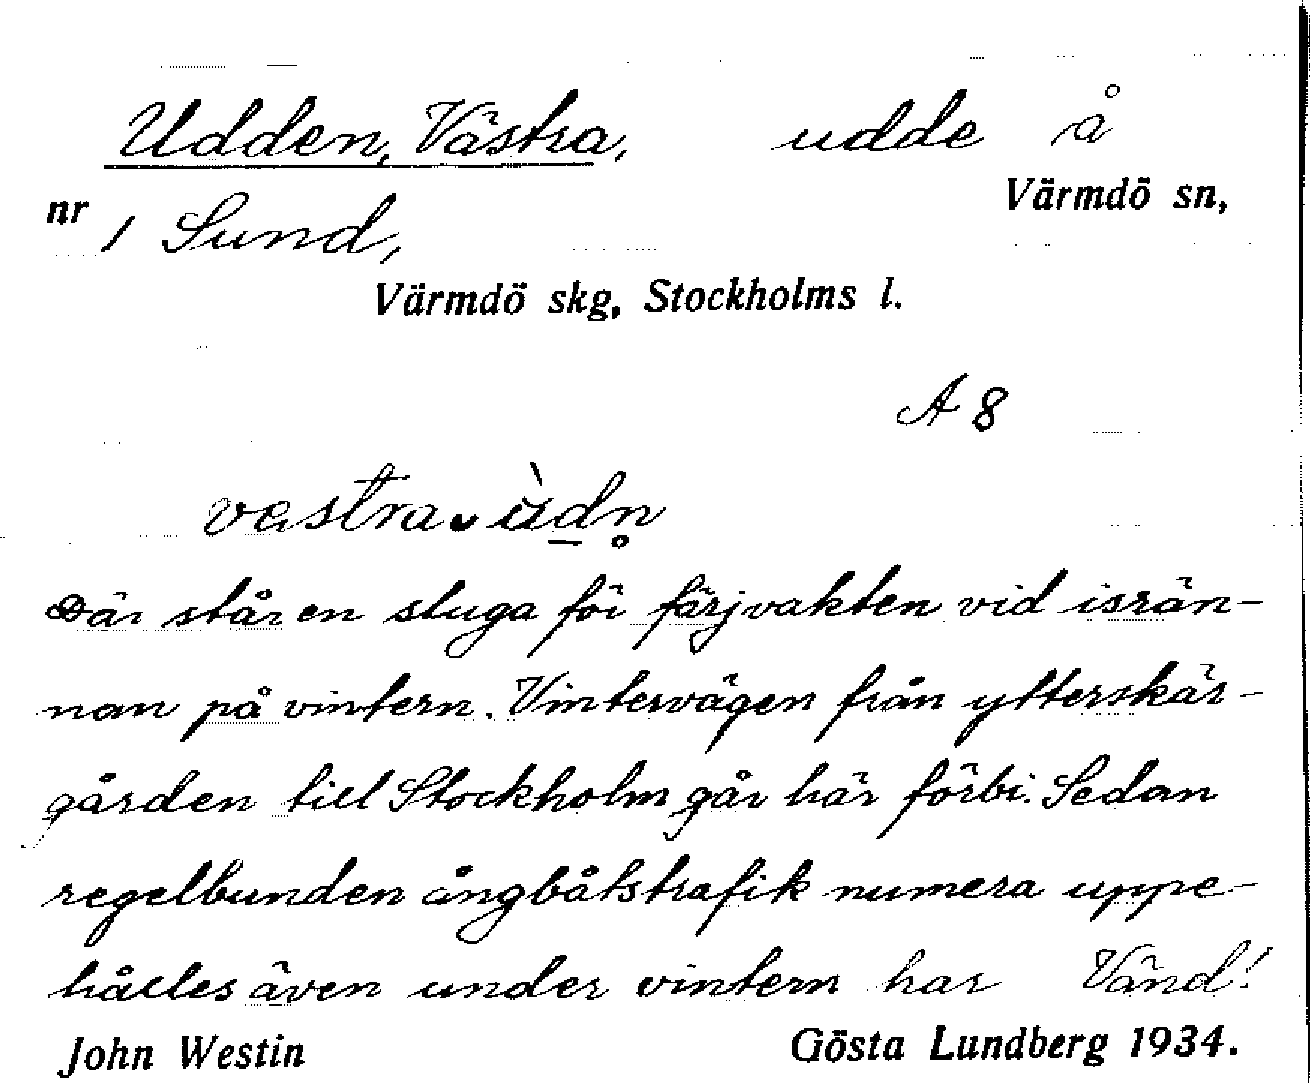 Udden, Västra, udde å
Värmdö sn,
nr 1 Sund,
Värmdö skg, Stockholms l.
A 8
vestra ùdn̥
Där står en stuga för färjvakten vid isrän-
nan på vintern. Vintervägen från ytterskär-
gården till Stockholm går här förbi. Sedan
regelbunden ångbåtstrafik numera uppe-
hålles även under vintern har Vänd!
John Westin Gösta Lundberg 1934.